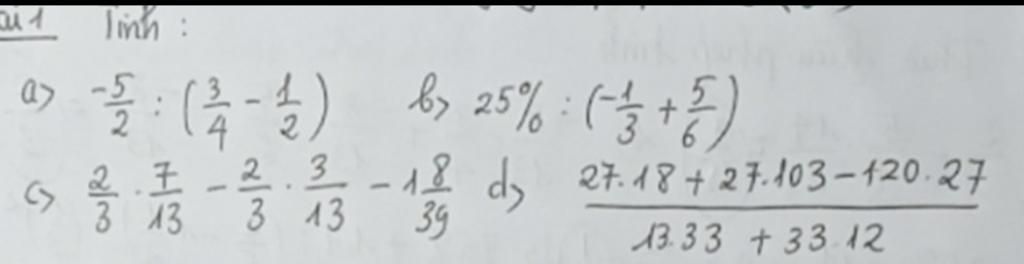 Bài 1 Tính :
a) -5/2 : (3/4 - 1/2) b) 25% : (-1/3 + 5/6)
c) 2/3 . 7/13 - 2/3 . 3/13 - 1 8/39 d) (27.18 + 27.103 - 120.27)/(13.33 + 33.12)